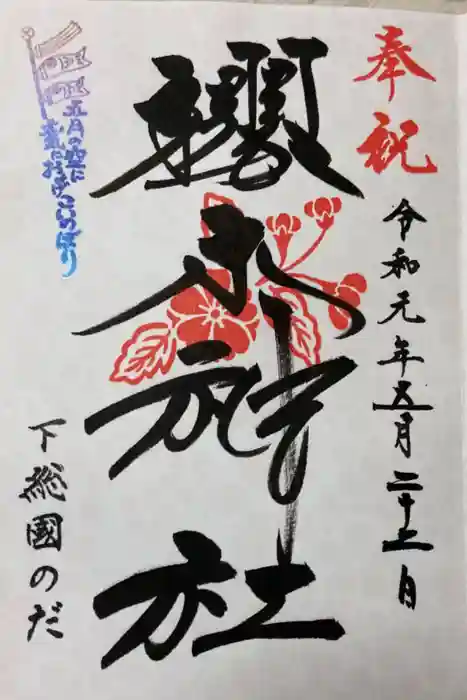 奉祝
令和元年五月二十二日
櫻木神社
五月の空に
およげこいのぼり
下総國のだ